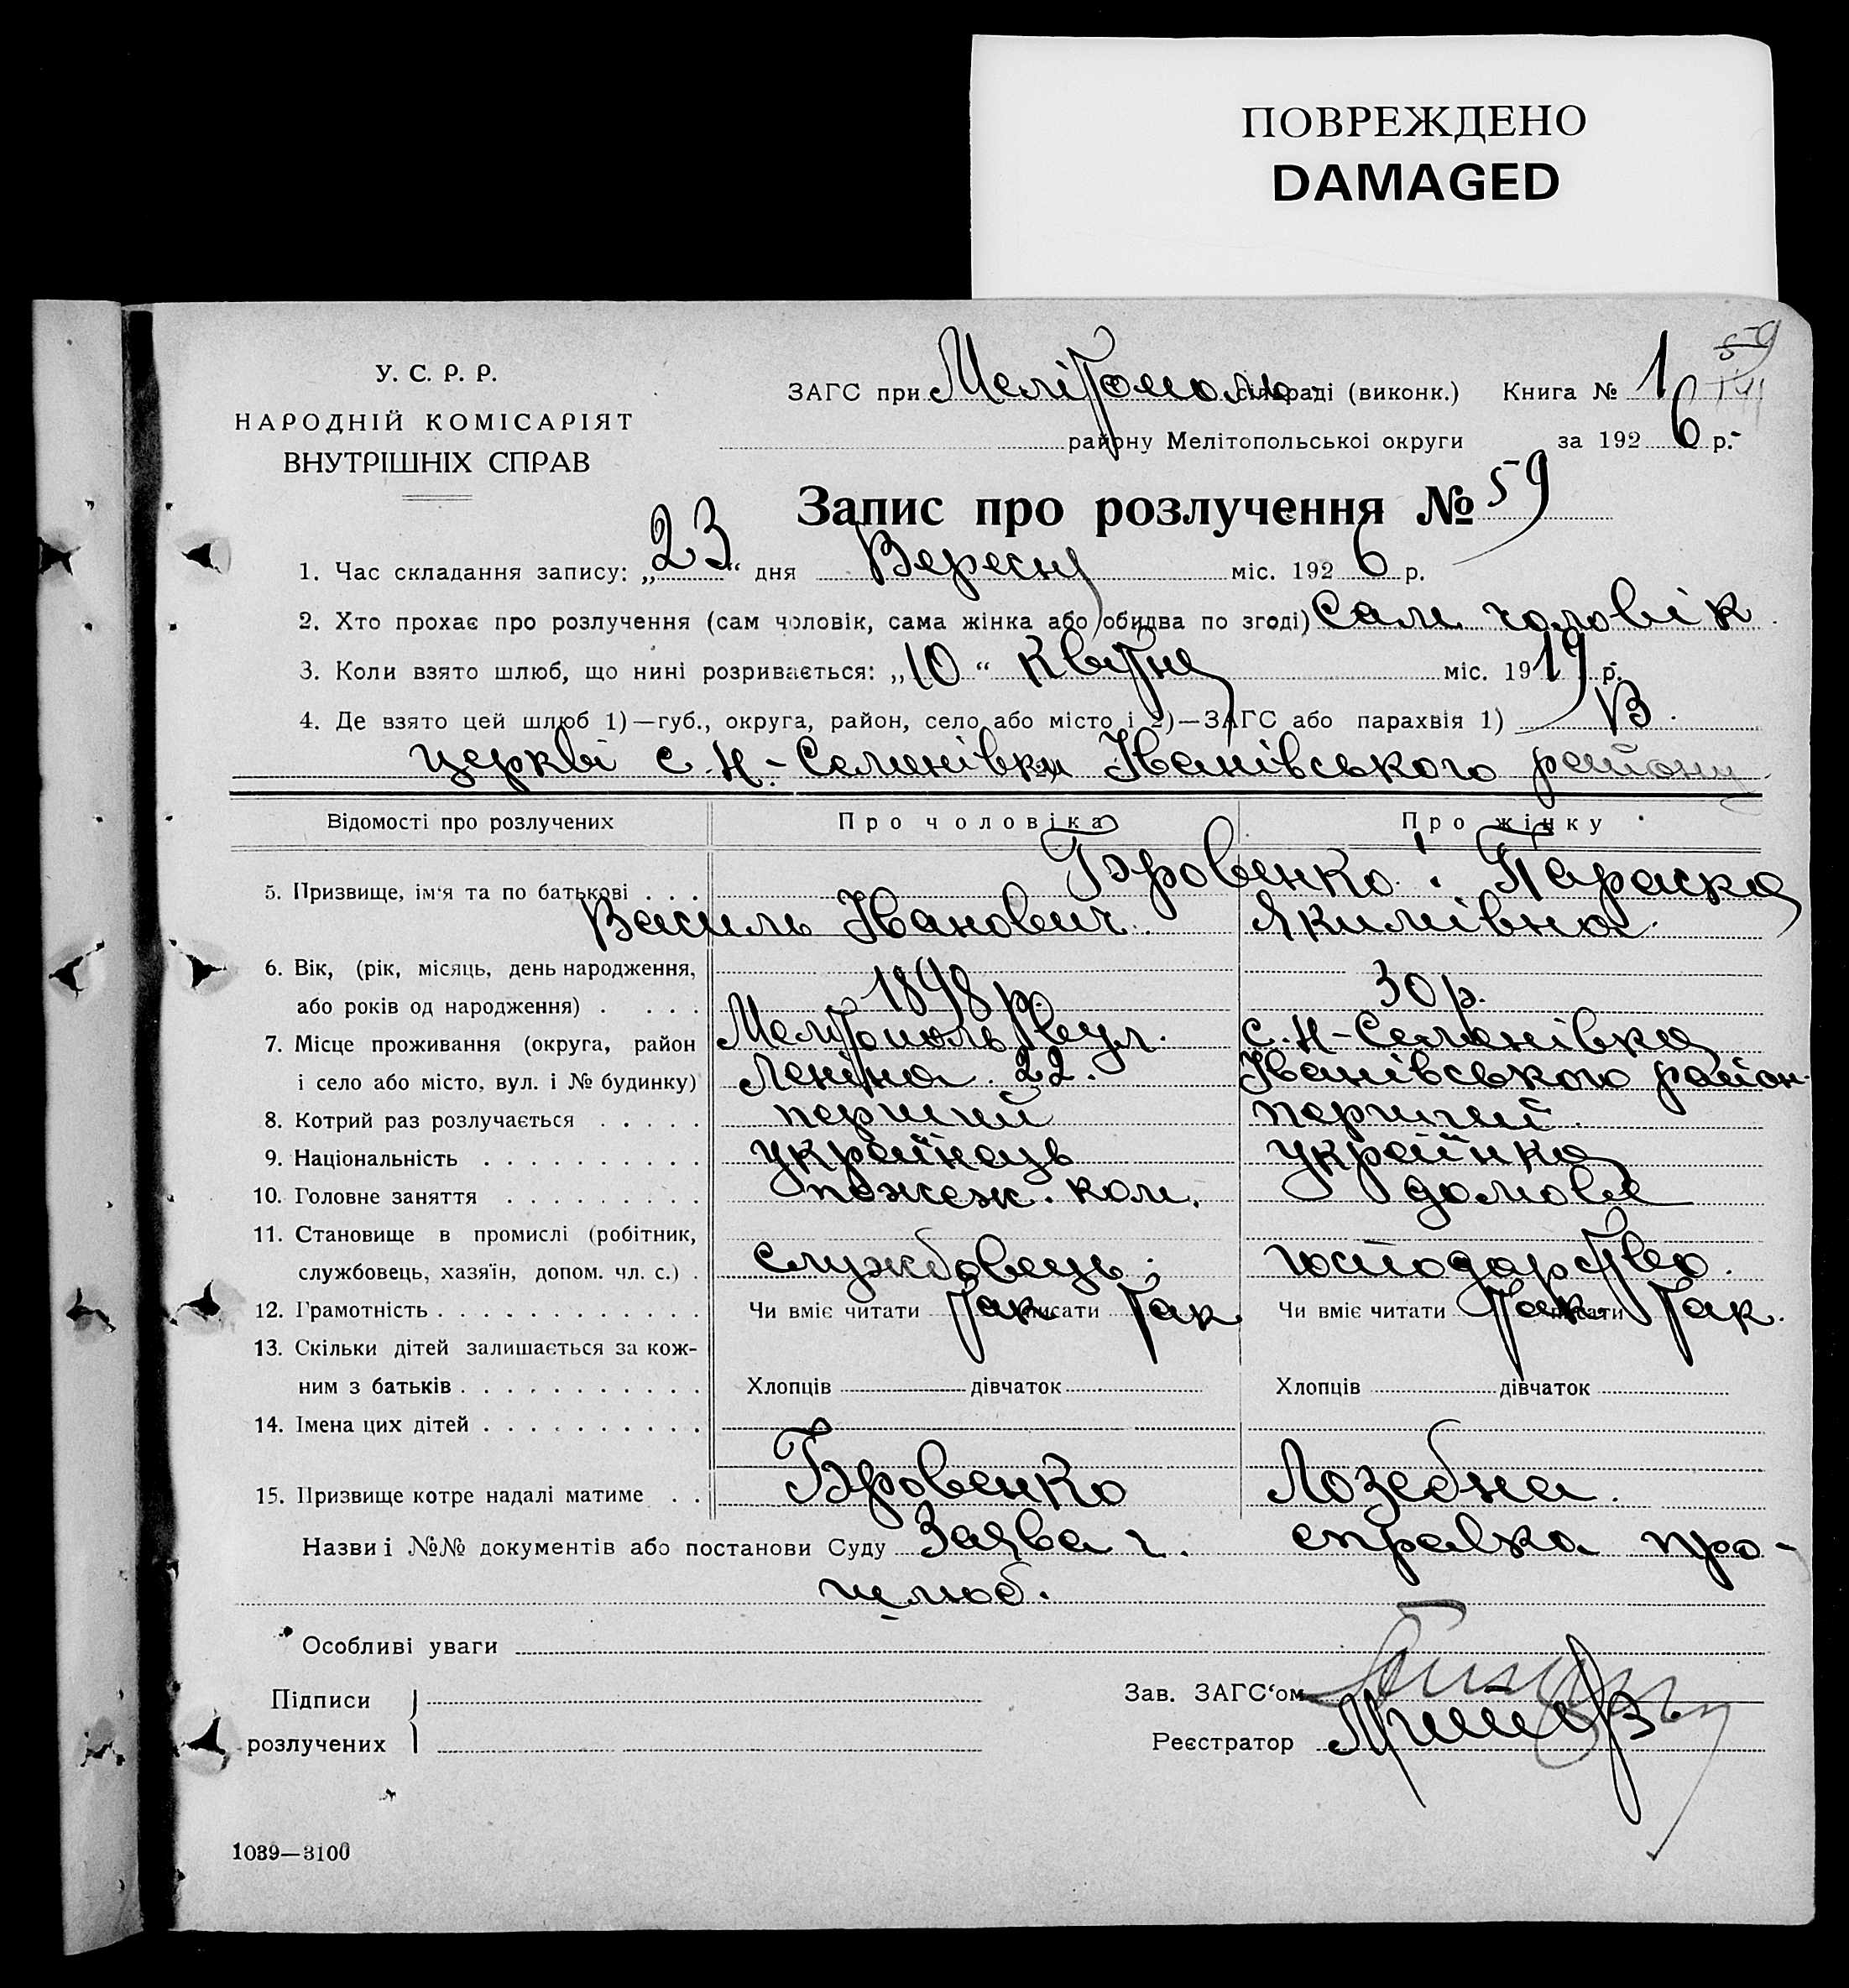 ПОВРЕЖДЕНО
DAMAGED
У. С. Р. Р.
НАРОДНІЙ КОМІСАРІЯТ
ВНУТРІШНІХ СПРАВ
ЗАГС при Мелітополь сільраді (виконк.) Книга № 1
59
району Мелітопольської округи за 1926 р.
Запис про розлучення № 59
1. Час складання запису: „23“ дня Вересня міс. 1926 р.
2. Хто прохає про розлучення (сам чоловік, сама жінка або обидва по згоді) Сам чоловік
3. Коли взято шлюб, що нині розривається: „10“ Квітня міс. 1919 р.
4. Де взято цей шлюб 1)—губ., округа, район, село або місто і 2)—ЗАГС або парахвія 1) В
церкві с. Н-Семенівки Іванівського району
Відомості про розлучених Про чоловіка Про жінку
5. Призвище, ім‘я та по батькові . . . Бровенко : Параска
Василь Іванович. Якимівна.
6. Вік, (рік, місяць, день народження,
або років од народження) . . . . 1898 р. 30 р.
7. Місце проживання (округа, район Мелітополь вул. с. Н-Семенівка
і село або місто, вул. і № будинку) Леніна 22. Іванівського район.
8. Котрий раз розлучається . . . . . перший перший.
9. Національність . . . . . . . . . . українець українка
10. Головне заняття . . . . . . . . . пожеж. ком. домове
11. Становище в промислі (робітник,
службовець, хазяїн, допом. чл. с.) . службовець. господарство.
12. Грамотність . . . . . . . . . . . . Чи вміє читати Так писати Так Чи вміє читати Так. писати Так.
13. Скільки дітей залишається за кож-
ним з батьків . . . . . . . . . . . Хлопців дівчаток Хлопців дівчаток
14. Імена цих дітей . . . . . . . . . .
15. Призвище котре надалі матиме . . Бровенко Лозебна.
Назви і №№ документів або постанови Суду Заява і. справка про-
шлюб.
Особливі уваги
Підписи
Зав. ЗАГС‘ом
розлучених
Реєстратор
1039—3100